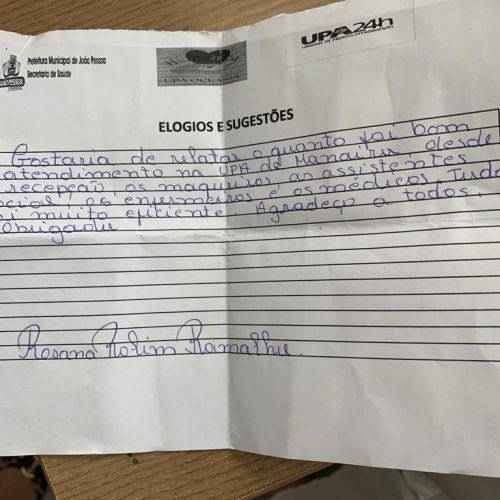 Prefeitura Municipal de João Pessoa
Secretaria de Saúde
JOÃO PESSOA
UPA OCEANIA
UPA24h
UNIDADE DE PRONTO ATENDIMENTO
ELOGIOS E SUGESTÕES
Gostaria de relatar o quanto foi bom
atendimento na UPA de Manaíra, desde
recepção, os maqueiros, as assistentes
cial, os enfermeiros e os médicos. Tudo
oi muito eficiente. Agradeço a todos.
Obrigada
Rosana Rolim Ramalho.